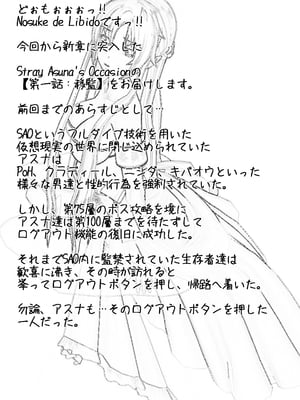 どぉもぉぉぉっ!!
Nosuke de Libidoですっ!!
今回から新章に突入した
Stray Asuna's Occasionの
【第一話：移監】をお届けします。
前回までのあらすじとして…
SAOというフルダイブ技術を用いた
仮想現実の世界に閉じ込められていた
アスナは
PoH、クラディール、ニシダ、キバオウといった
様々な男達と性的行為を強制されていた。
しかし、第75層のボス攻略を境に
アスナ達は第100層までを待たずして
ログアウト機能の復旧に成功した。
それまでSAO内に監禁されていた生存者達は
歓喜に沸き、その時が訪れると
挙ってログアウトボタンを押し、帰路へ着いた。
勿論、アスナも…そのログアウトボタンを押した
一人だった。